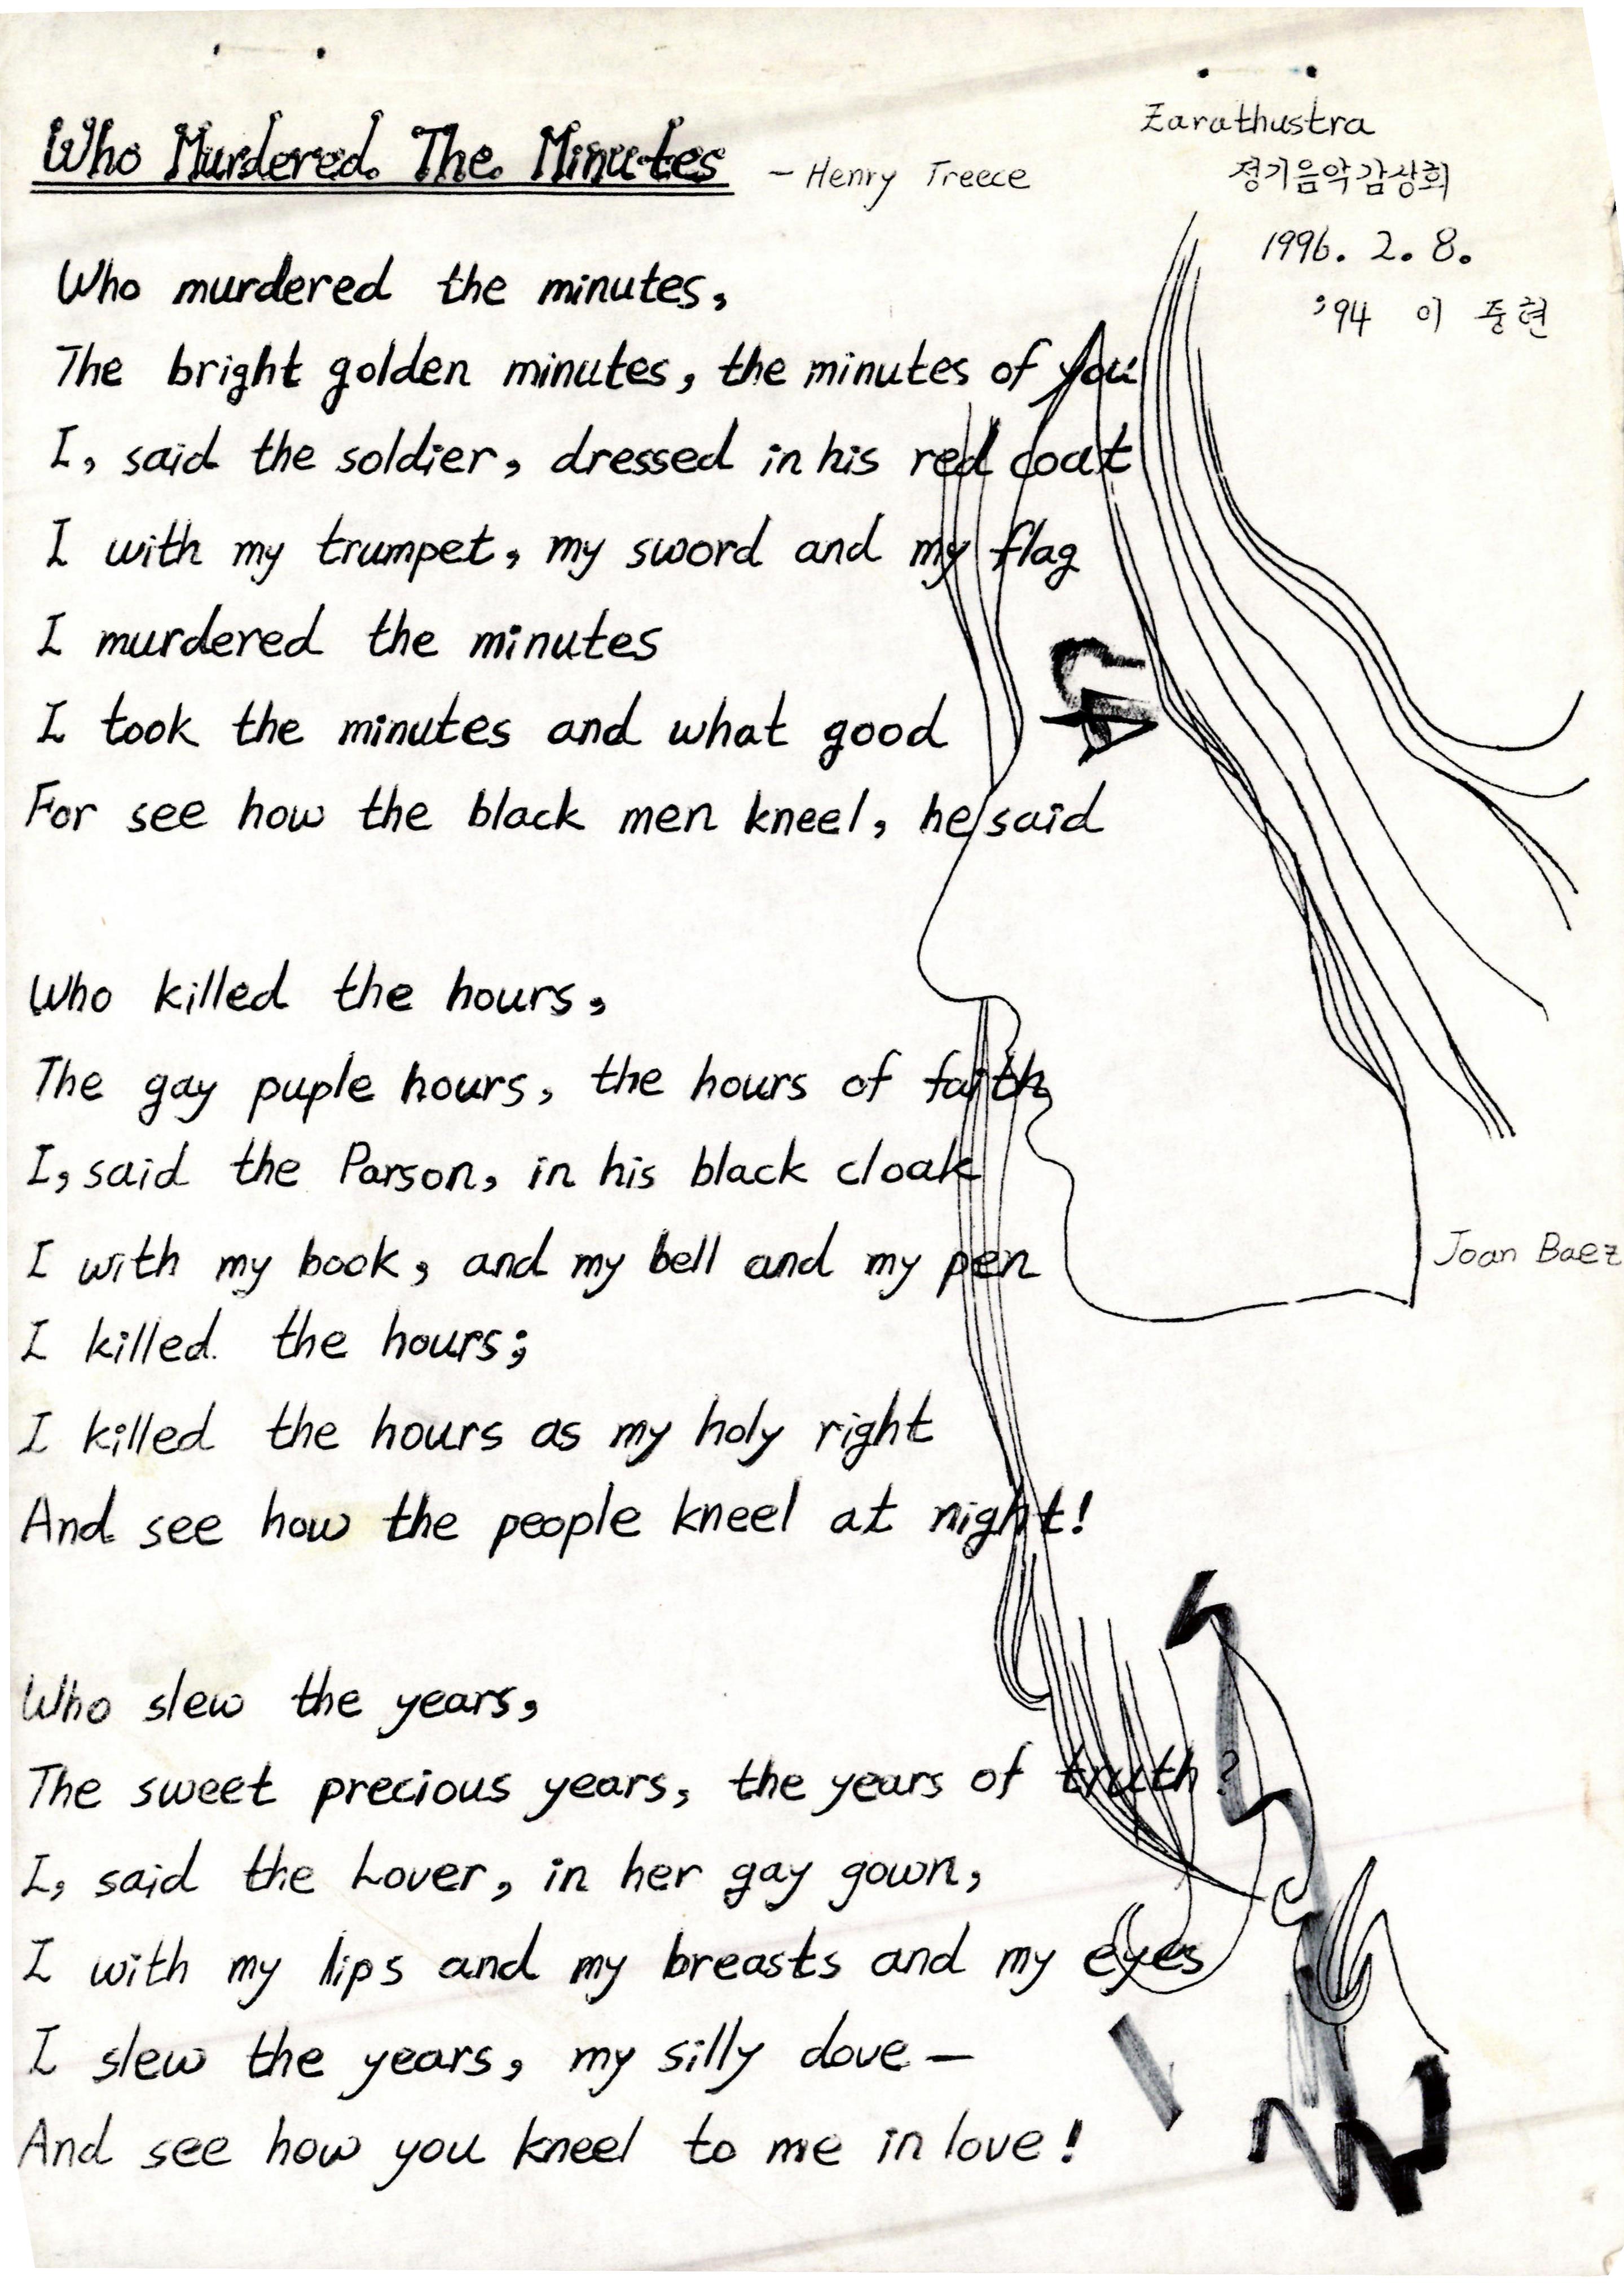 Who Murdered The Minutes - Henry Treece
Zarathustra
정기음악감상회
1996. 2. 8.
'94 이 중현
Who murdered the minutes,
The bright golden minutes, the minutes of you
I, said the soldier, dressed in his red coat
I with my trumpet, my sword and my flag
I murdered the minutes
I took the minutes and what good
For see how the black men kneel, he said
Who killed the hours,
The gay puple hours, the hours of faith
I, said the Parson, in his black cloak
I with my book, and my bell and my pen
Joan Baez
I killed the hours;
I killed the hours as my holy right
And see how the people kneel at night!
Who slew the years,
The sweet precious years, the years of truth?
I, said the Lover, in her gay gown,
I with my lips and my breasts and my eyes
I slew the years, my silly dove —
And see how you kneel to me in love!